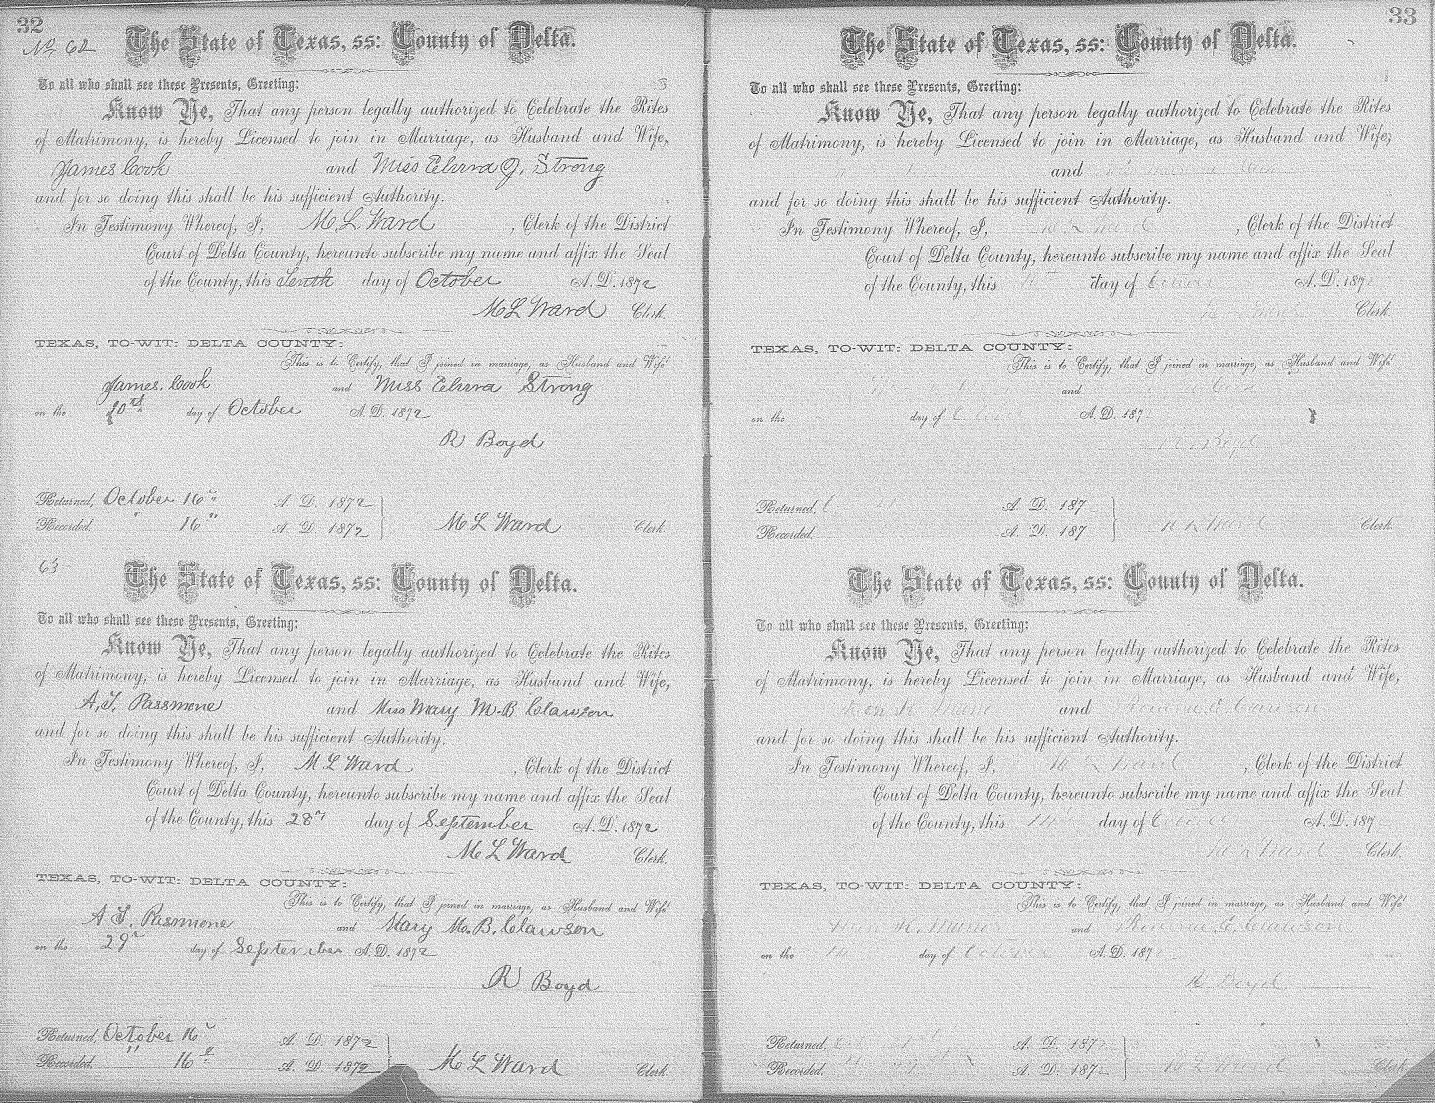 32
No 62
The State of Texas, ss: County of Delta.
To all who shall see these Presents, Greeting:
Know Ye, That any person legally authorized to Celebrate the Rites
of Matrimony, is hereby Licensed to join in Marriage, as Husband and Wife,
James Cook and Miss Elvira J. Strong
and for so doing this shall be his sufficient Authority.
In Testimony Whereof, I, M L Ward, Clerk of the District
Court of Delta County, hereunto subscribe my name and affix the Seal
of the County, this Tenth day of October A. D. 1872
M L Ward Clerk.
TEXAS, TO-WIT: DELTA COUNTY:
This is to Certify, that I joined in marriage, as Husband and Wife
James Cook and Miss Elvira Strong
on the day of October A. D. 1872
R Boyd
Returned, October 16 A. D. 1872
Recorded. " 16 " A. D. 1872 M L Ward Clerk
63
The State of Texas, ss: County of Delta.
To all who shall see these Presents, Greeting:
Know Ye, That any person legally authorized to Celebrate the Rites
of Matrimony, is hereby Licensed to join in Marriage, as Husband and Wife,
and Miss Mary M. B Clawson
and for so doing this shall be his sufficient Authority.
In Testimony Whereof, I, M L Ward, Clerk of the District
Court of Delta County, hereunto subscribe my name and affix the Seal
of the County, this 28" day of September A. D. 1872
M L Ward Clerk.
TEXAS, TO-WIT: DELTA COUNTY:
This is to Certify, that I joined in marriage, as Husband and Wife
and Mary M. B. Clawson
on the 29 day of September A. D. 1872
R Boyd
Returned, October 16 A. D. 1872
Recorded. " 16 A. D. 1872 M L Ward Clerk
33
The State of Texas, ss: County of Delta.
To all who shall see these Presents, Greeting:
Know Ye, That any person legally authorized to Celebrate the Rites
of Matrimony, is hereby Licensed to join in Marriage, as Husband and Wife,
and
and for so doing this shall be his sufficient Authority.
In Testimony Whereof, I, M L Ward, Clerk of the District
Court of Delta County, hereunto subscribe my name and affix the Seal
of the County, this day of A. D. 187
Clerk.
TEXAS, TO-WIT: DELTA COUNTY:
This is to Certify, that I joined in marriage, as Husband and Wife
and
on the day of A. D. 187
Boyd
Returned, A. D. 187
Recorded. A. D. 187 M L Ward Clerk
The State of Texas, ss: County of Delta.
To all who shall see these Presents, Greeting:
Know Ye, That any person legally authorized to Celebrate the Rites
of Matrimony, is hereby Licensed to join in Marriage, as Husband and Wife,
and
and for so doing this shall be his sufficient Authority.
In Testimony Whereof, I, M L Ward, Clerk of the District
Court of Delta County, hereunto subscribe my name and affix the Seal
of the County, this day of A. D. 187
M L Ward Clerk.
TEXAS, TO-WIT: DELTA COUNTY:
This is to Certify, that I joined in marriage, as Husband and Wife
and Clawson
on the day of A. D. 187
R Boyd
Returned, A. D. 187
Recorded. A. D. 187 M L Ward Clerk